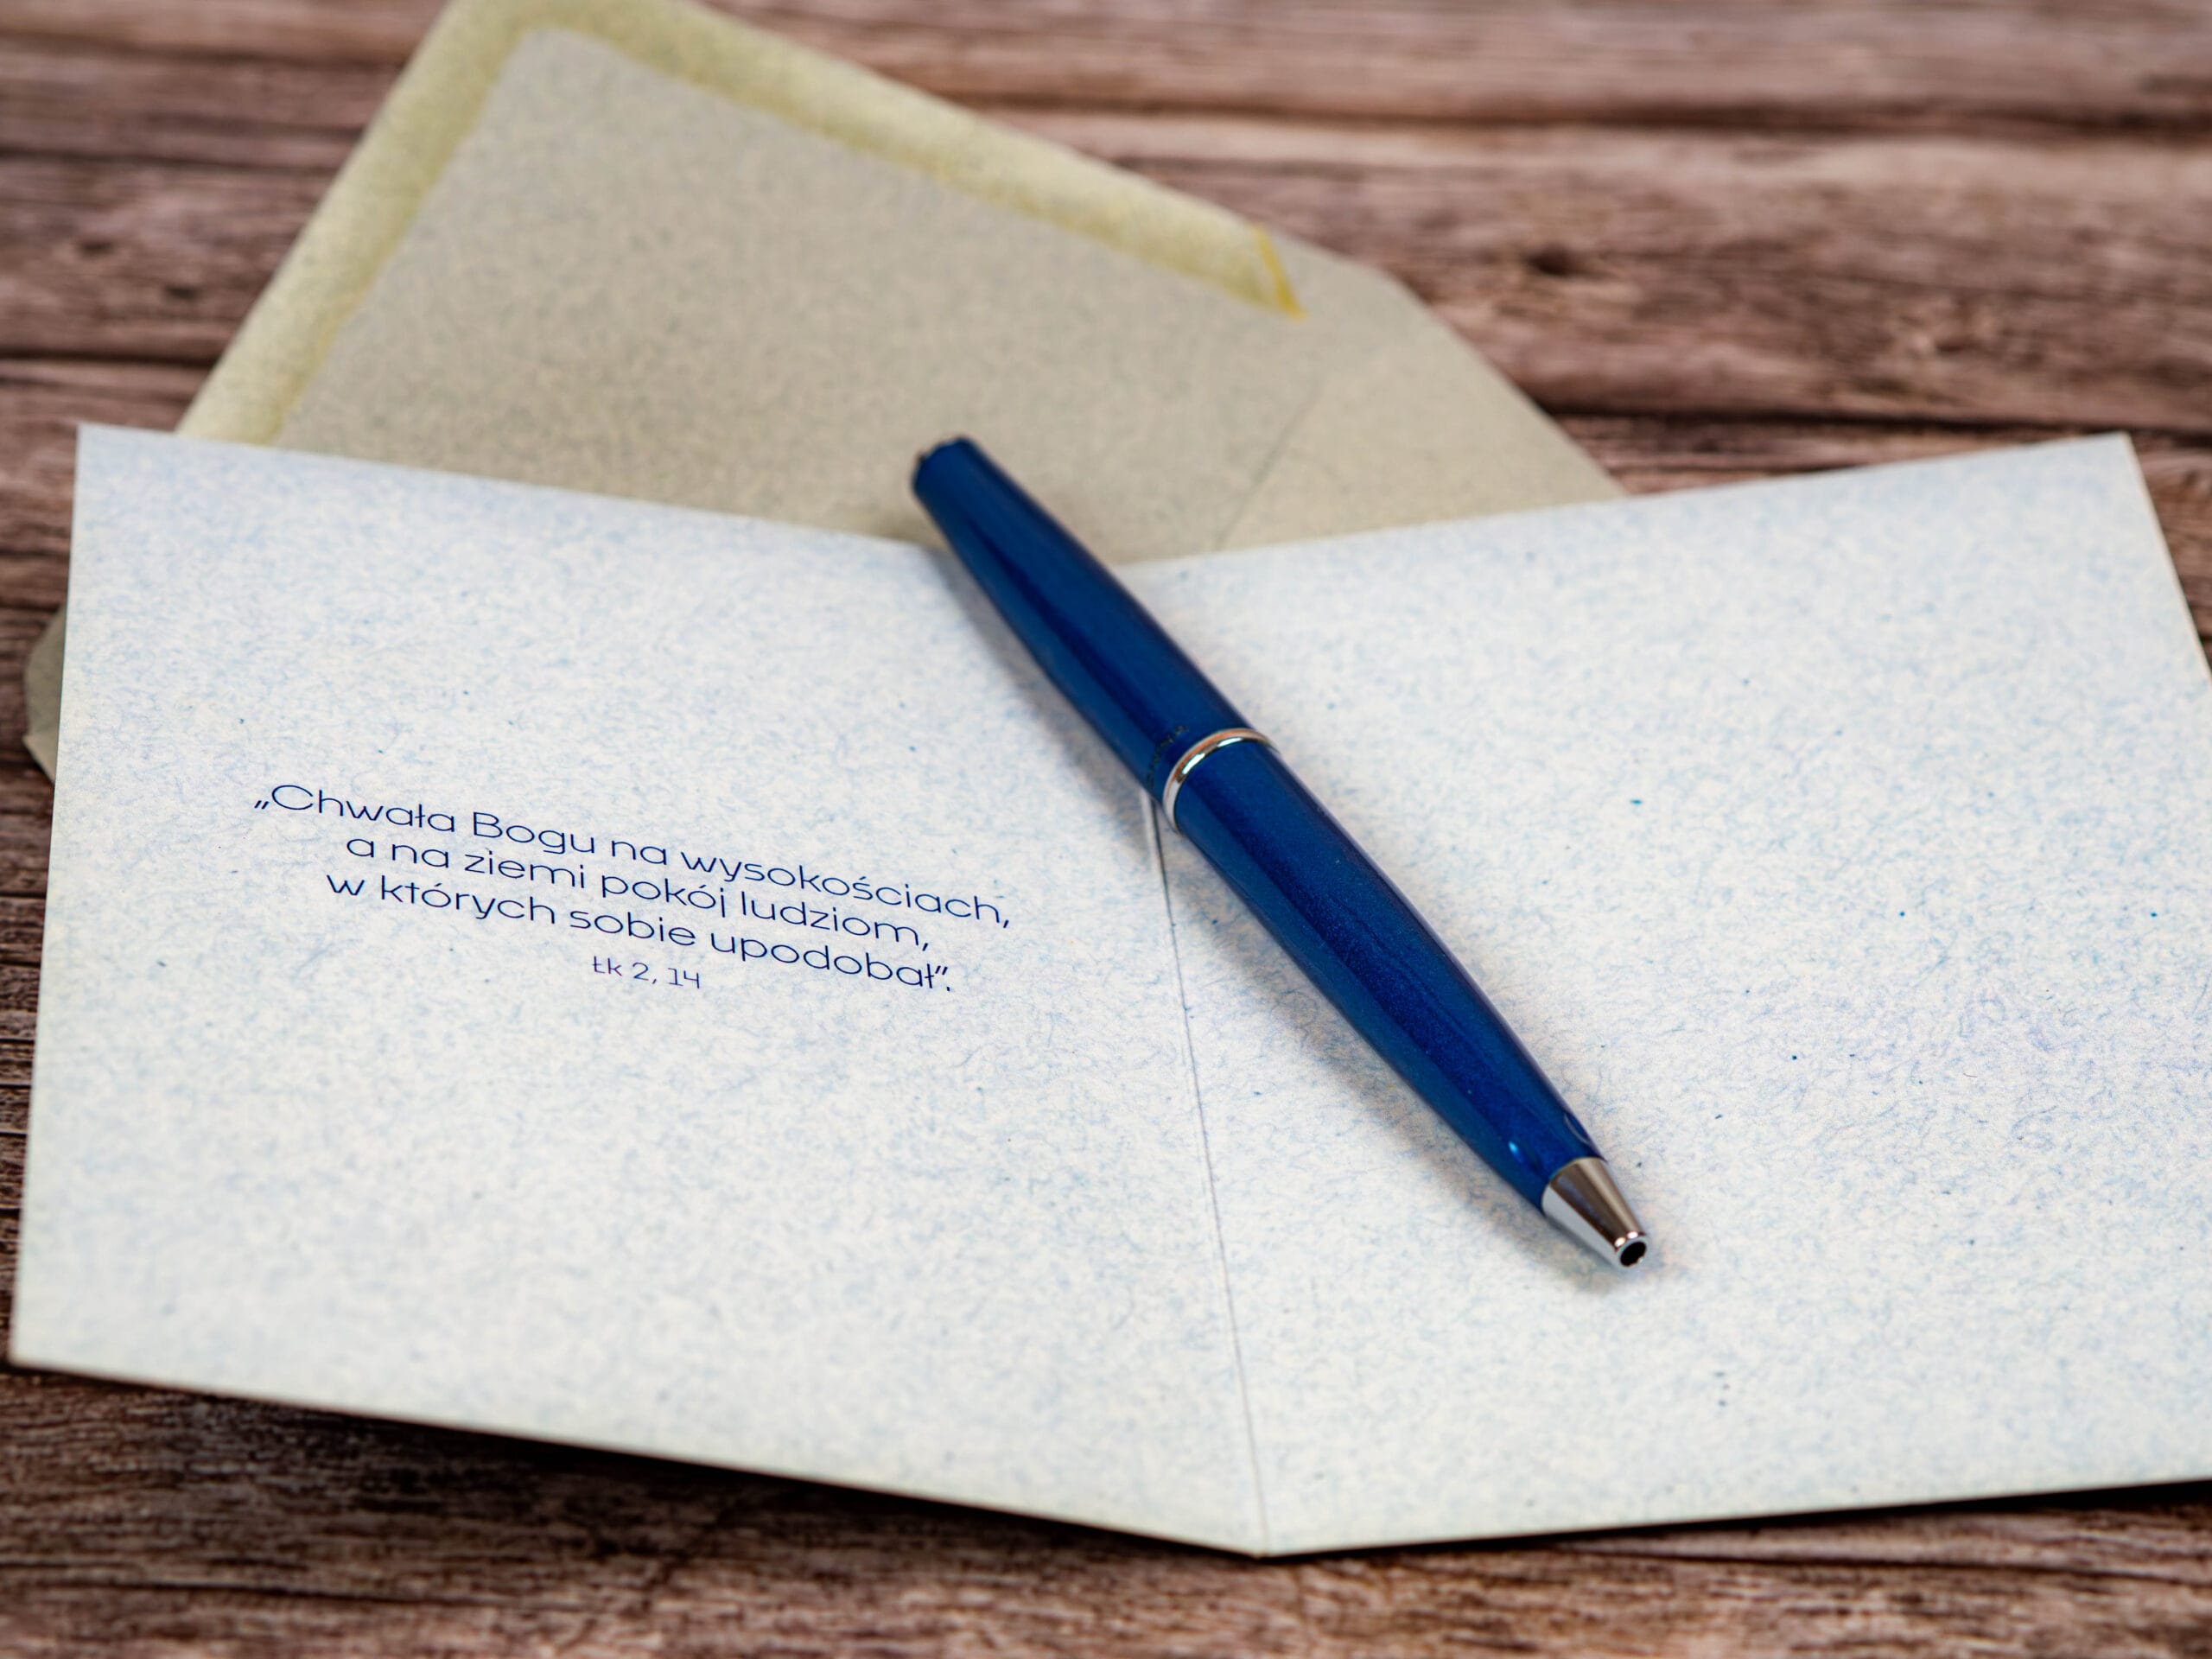 „Chwała Bogu na wysokościach,
a na ziemi pokój ludziom,
w których sobie upodobał”.
Łk 2, 14